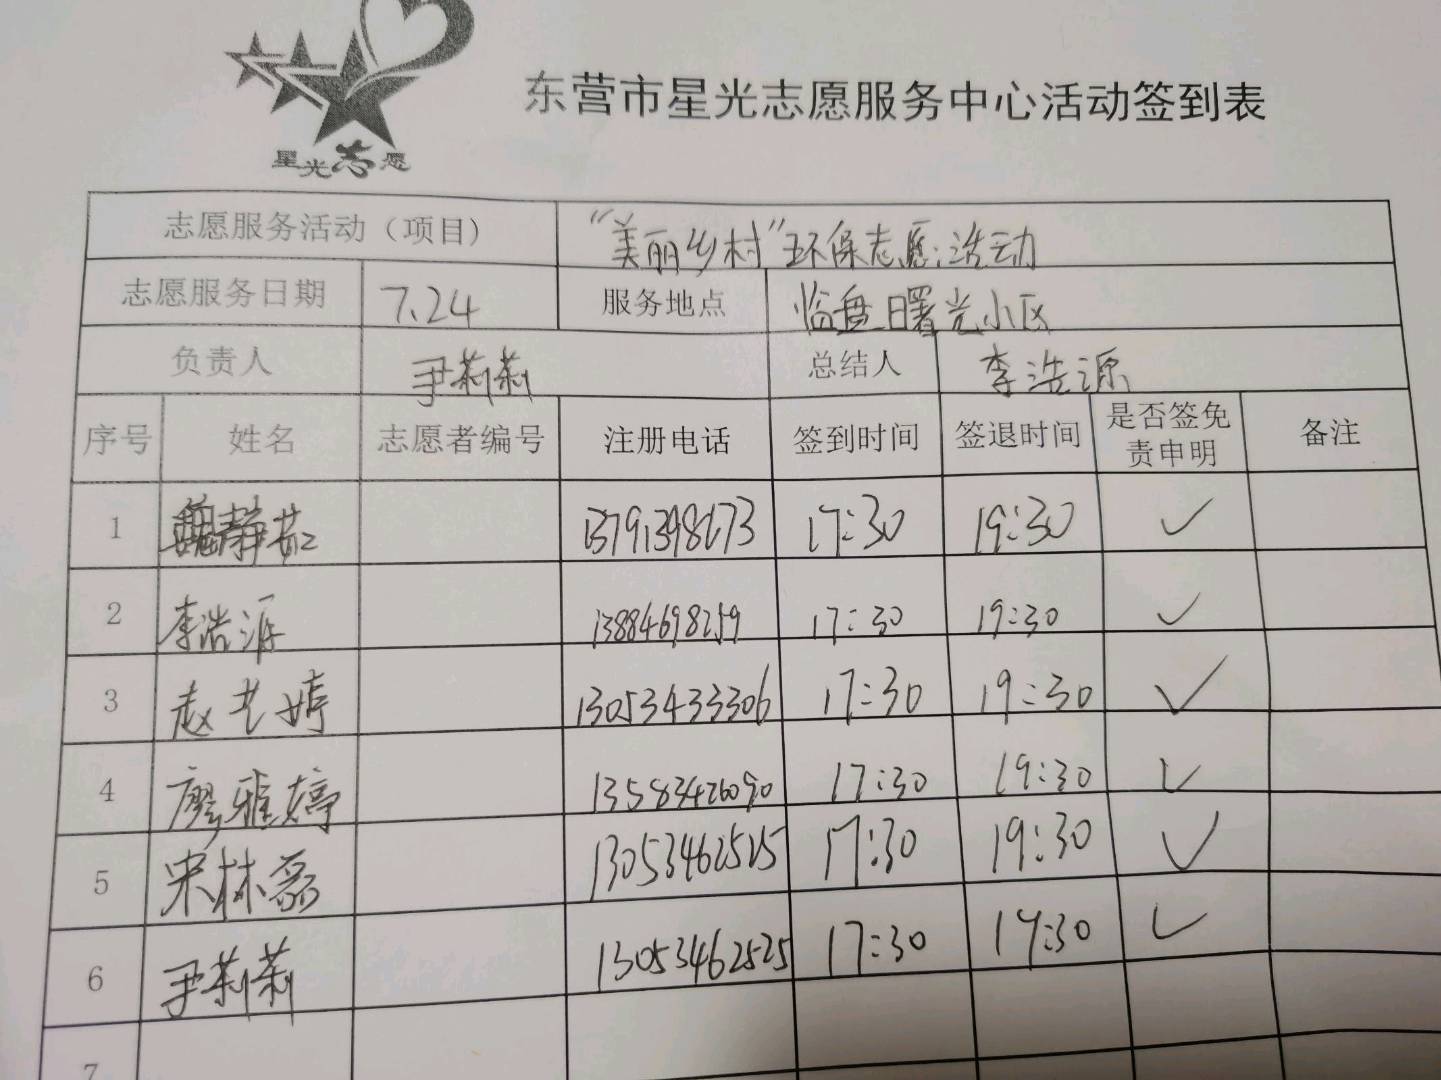 星光志愿
东营市星光志愿服务中心活动签到表
志愿服务活动（项目） “美丽乡村”环保志愿活动
志愿服务日期 7.24 服务地点 临盘曙光小区
负责人 尹莉莉 总结人 李浩源
序号 姓名 志愿者编号 注册电话 签到时间 签退时间 是否签免责申明 备注
1 魏静茹 17:30 19:30 ✓
2 李浩源 13884698259 17:30 19:30 ✓
3 赵艺婷 13053433306 17:30 19:30 ✓
4 廖雅婷 13583426090 17:30 19:30 ✓
5 宋林磊 13053462525 17:30 19:30 ✓
6 尹莉莉 13053462525 17:30 19:30 ✓
7